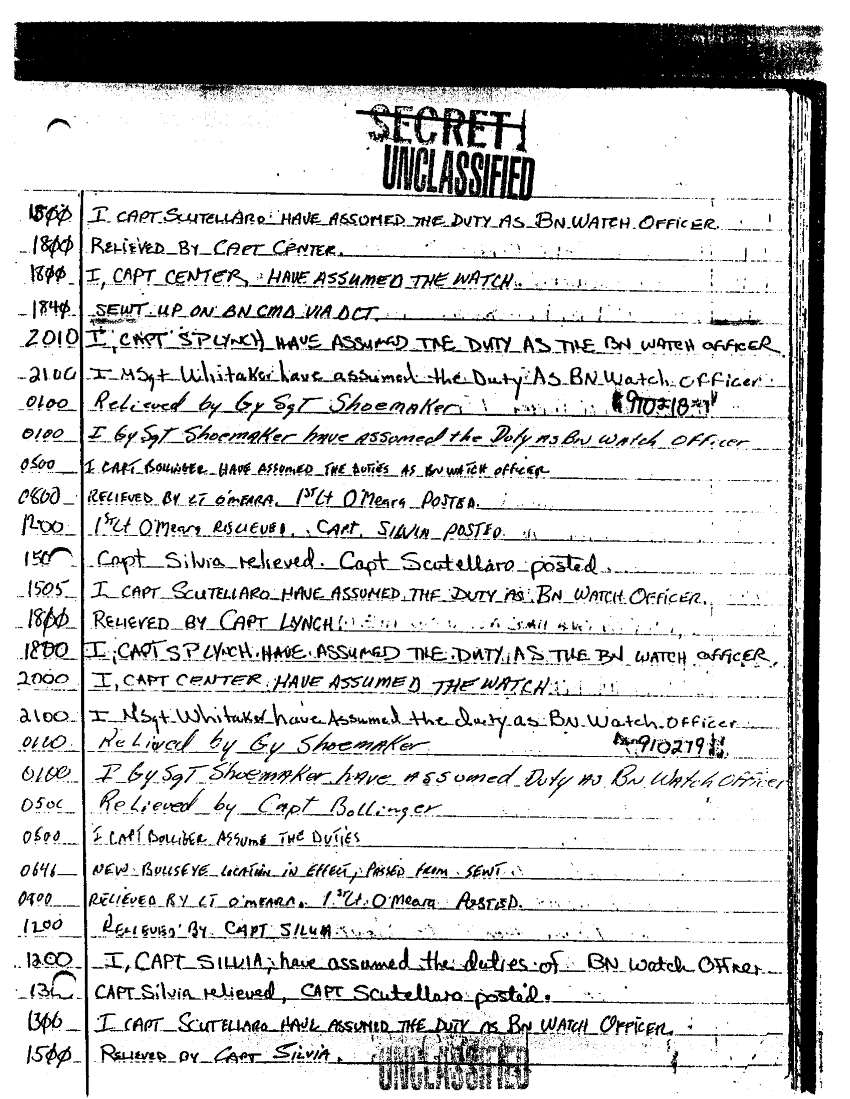 SECRET
UNCLASSIFIED
1500 I CAPT SCUTELLARO HAVE ASSUMED THE DUTY AS BN WATCH OFFICER.
1800 RELIEVED BY CAPT CENTER.
1800 I, CAPT CENTER, HAVE ASSUMED THE WATCH.
1840 SEWT UP ON BN CMD VIA DCT.
2010 I, CAPT SP LYNCH, HAVE ASSUMED THE DUTY AS THE BN WATCH OFFICER.
2100 I MSgt Whitaker have assumed the Duty AS BN Watch officer
0100 Relieved by GySgT Shoemaker
0100 I GySgT Shoemaker have assumed the Duty AS BN Watch officer
0500 I CAPT BOLLINGER HAVE ASSUMED THE DUTIES AS BN WATCH OFFICER
0800 RELIEVED BY LT O'MEARA. 1st Lt O'Meara POSTED.
1200 1st Lt O'Meara RELIEVED. CAPT. SILVIA POSTED.
150 Capt Silvia relieved. Capt Scutellaro posted.
1505 I CAPT SCUTELLARO HAVE ASSUMED THE DUTY AS BN WATCH OFFICER.
1800 RELIEVED BY CAPT LYNCH
1800 I, CAPT SP LYNCH HAVE ASSUMED THE DUTY AS THE BN WATCH OFFICER.
2000 I, CAPT CENTER HAVE ASSUMED THE WATCH
2100 I MSgt Whitaker have Assumed the duty as BN Watch Officer
0100 Relived by Gy Shoemaker
0100 I GySgT Shoemaker have assumed Duty AS BN Watch Officer
0500 Relieved by Capt Bollinger
0500 I CAPT BOLLIGER ASSUME THE DUTIES
0646 NEW BULLSEYE LOCATION IN EFFECT, PASSED FROM SEWT
0800 RELIEVED BY LT O'MEARA. 1st Lt. O'Meara POSTED.
1200 RELIEVED BY CAPT SILVIA
1200 I, CAPT SILVIA, have assumed the duties of BN Watch Officer
13 CAPT Silvia relieved, CAPT Scutellaro posted.
1300 I CAPT SCUTELLARO HAVE ASSUMED THE DUTY AS BN WATCH OFFICER.
1500 RELIEVED BY CAPT SILVIA.
UNCLASSIFIED